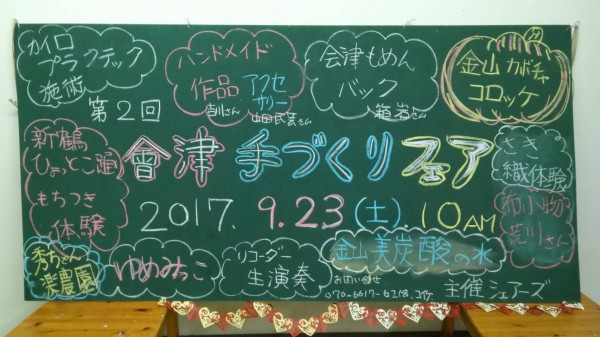 カイロ
プラクティック
施術
ハンドメイド
作品 アクセ
サリー
会津もめん
バック
金山カボチャ
コロッケ
第2回
會津 手づくりフェア
新鶴
ひょっとこ踊
もちつき
体験
さき
織体験
2017. 9.23(土) 10AM
布小物
荒川さん
秀ちゃん
楽農園
ゆめみっこ
リコーダー
生演奏
金山美炭酸の水
お問い合せ
主催 シェアーズ